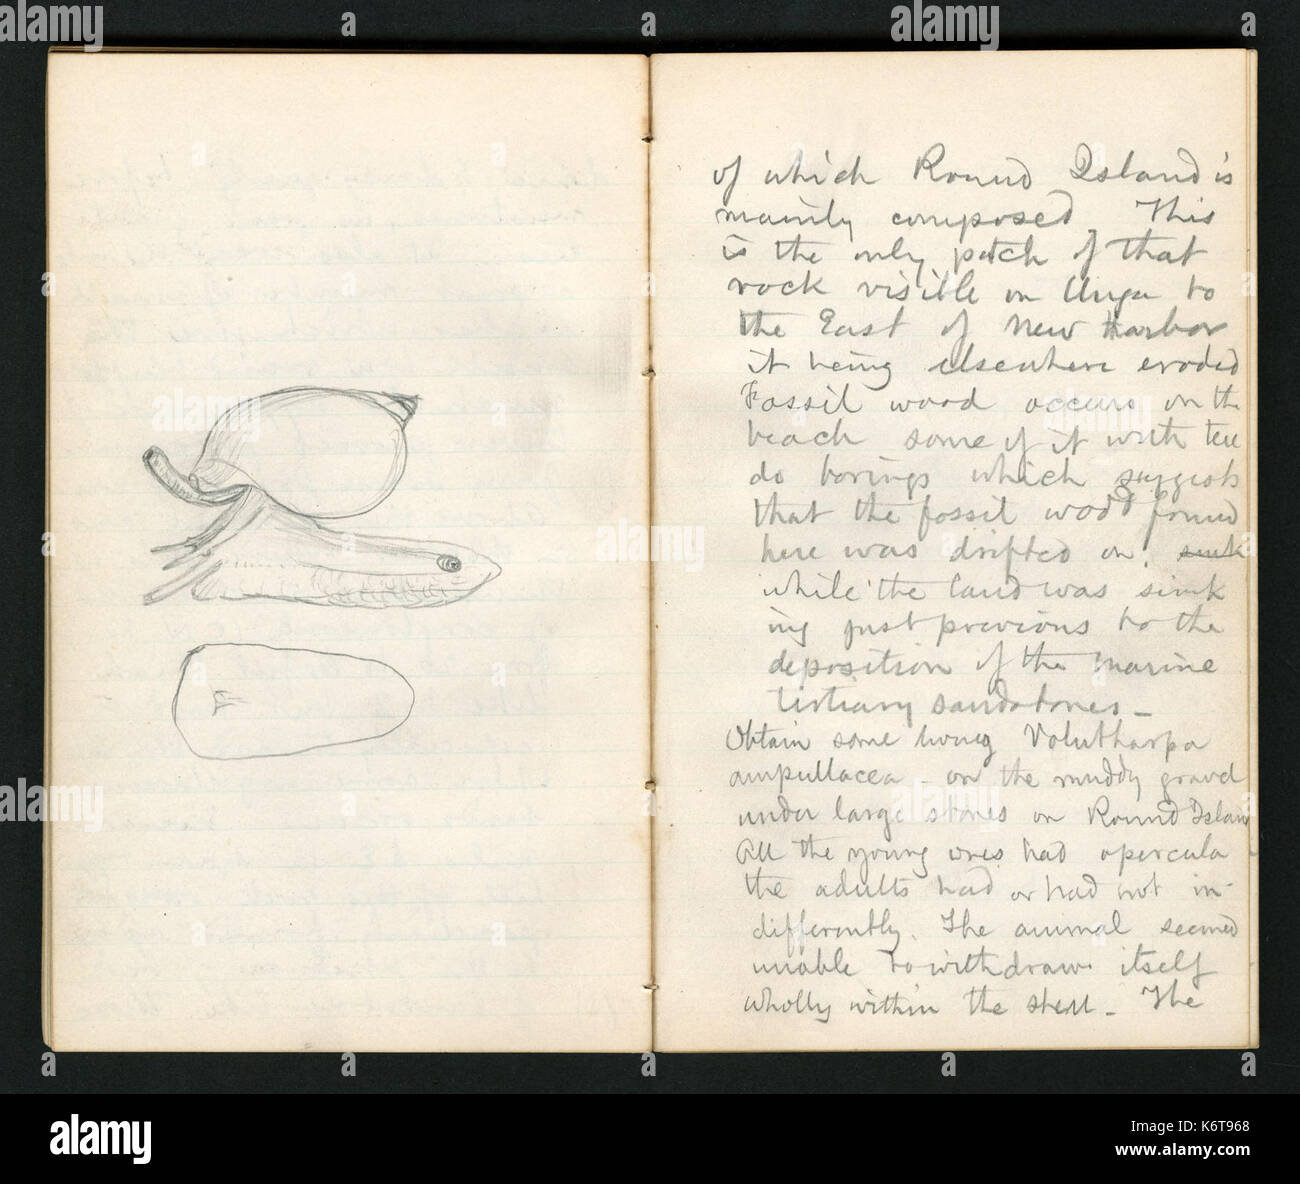 of which Round Island is
mainly composed This
is the only patch of that
rock visible on Unga to
the East of New Harbor
it being elsewhere eroded
Fossil wood occurs on the
beach some of it with tere
do borings which suggests
that the fossil wood found
here was drifted on sunk
while the land was sink
ing just previous to the
deposition of the marine
tertiary sandstones –
Obtain some living Volutharpa
ampullacea – on the muddy gravel
under large stones on Round Island
All the young ones had opercula
the adults had or had not in-
differently. The animal seemed
unable to withdraw itself
wholly within the shell – The
alamy
a
alamy stock photo
K6T968
www.alamy.com